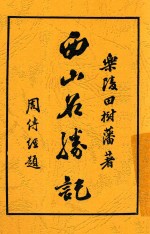 樂陵田樹藩著
西山名勝記
周伟經題